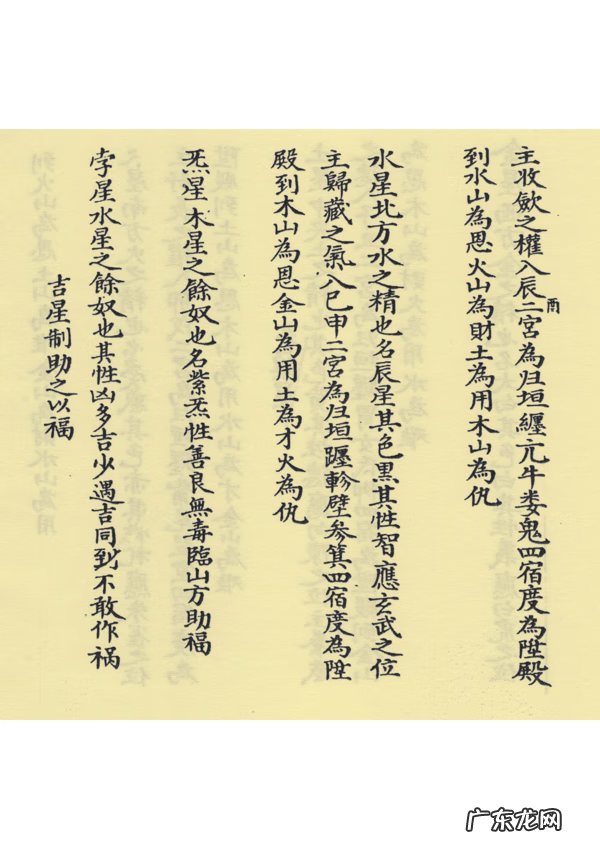 主收歛之權入辰酉二宮為归垣纏亢牛娄鬼四宿度為陞殿
到水山為恩火山為財土為用木山為仇
水星北方水之精也名辰星其色黑其性智應玄武之位
主歸藏之氣入巳申二宮為归垣躔軫壁参箕四宿度為陞
殿到木山為恩金山為用土為才火為仇
炁星木星之餘奴也名紫炁性善良無毒臨山方助福
孛星水星之餘奴也其性凶多吉少遇吉同到不敢作祸
吉星制助之以福
广东龙网